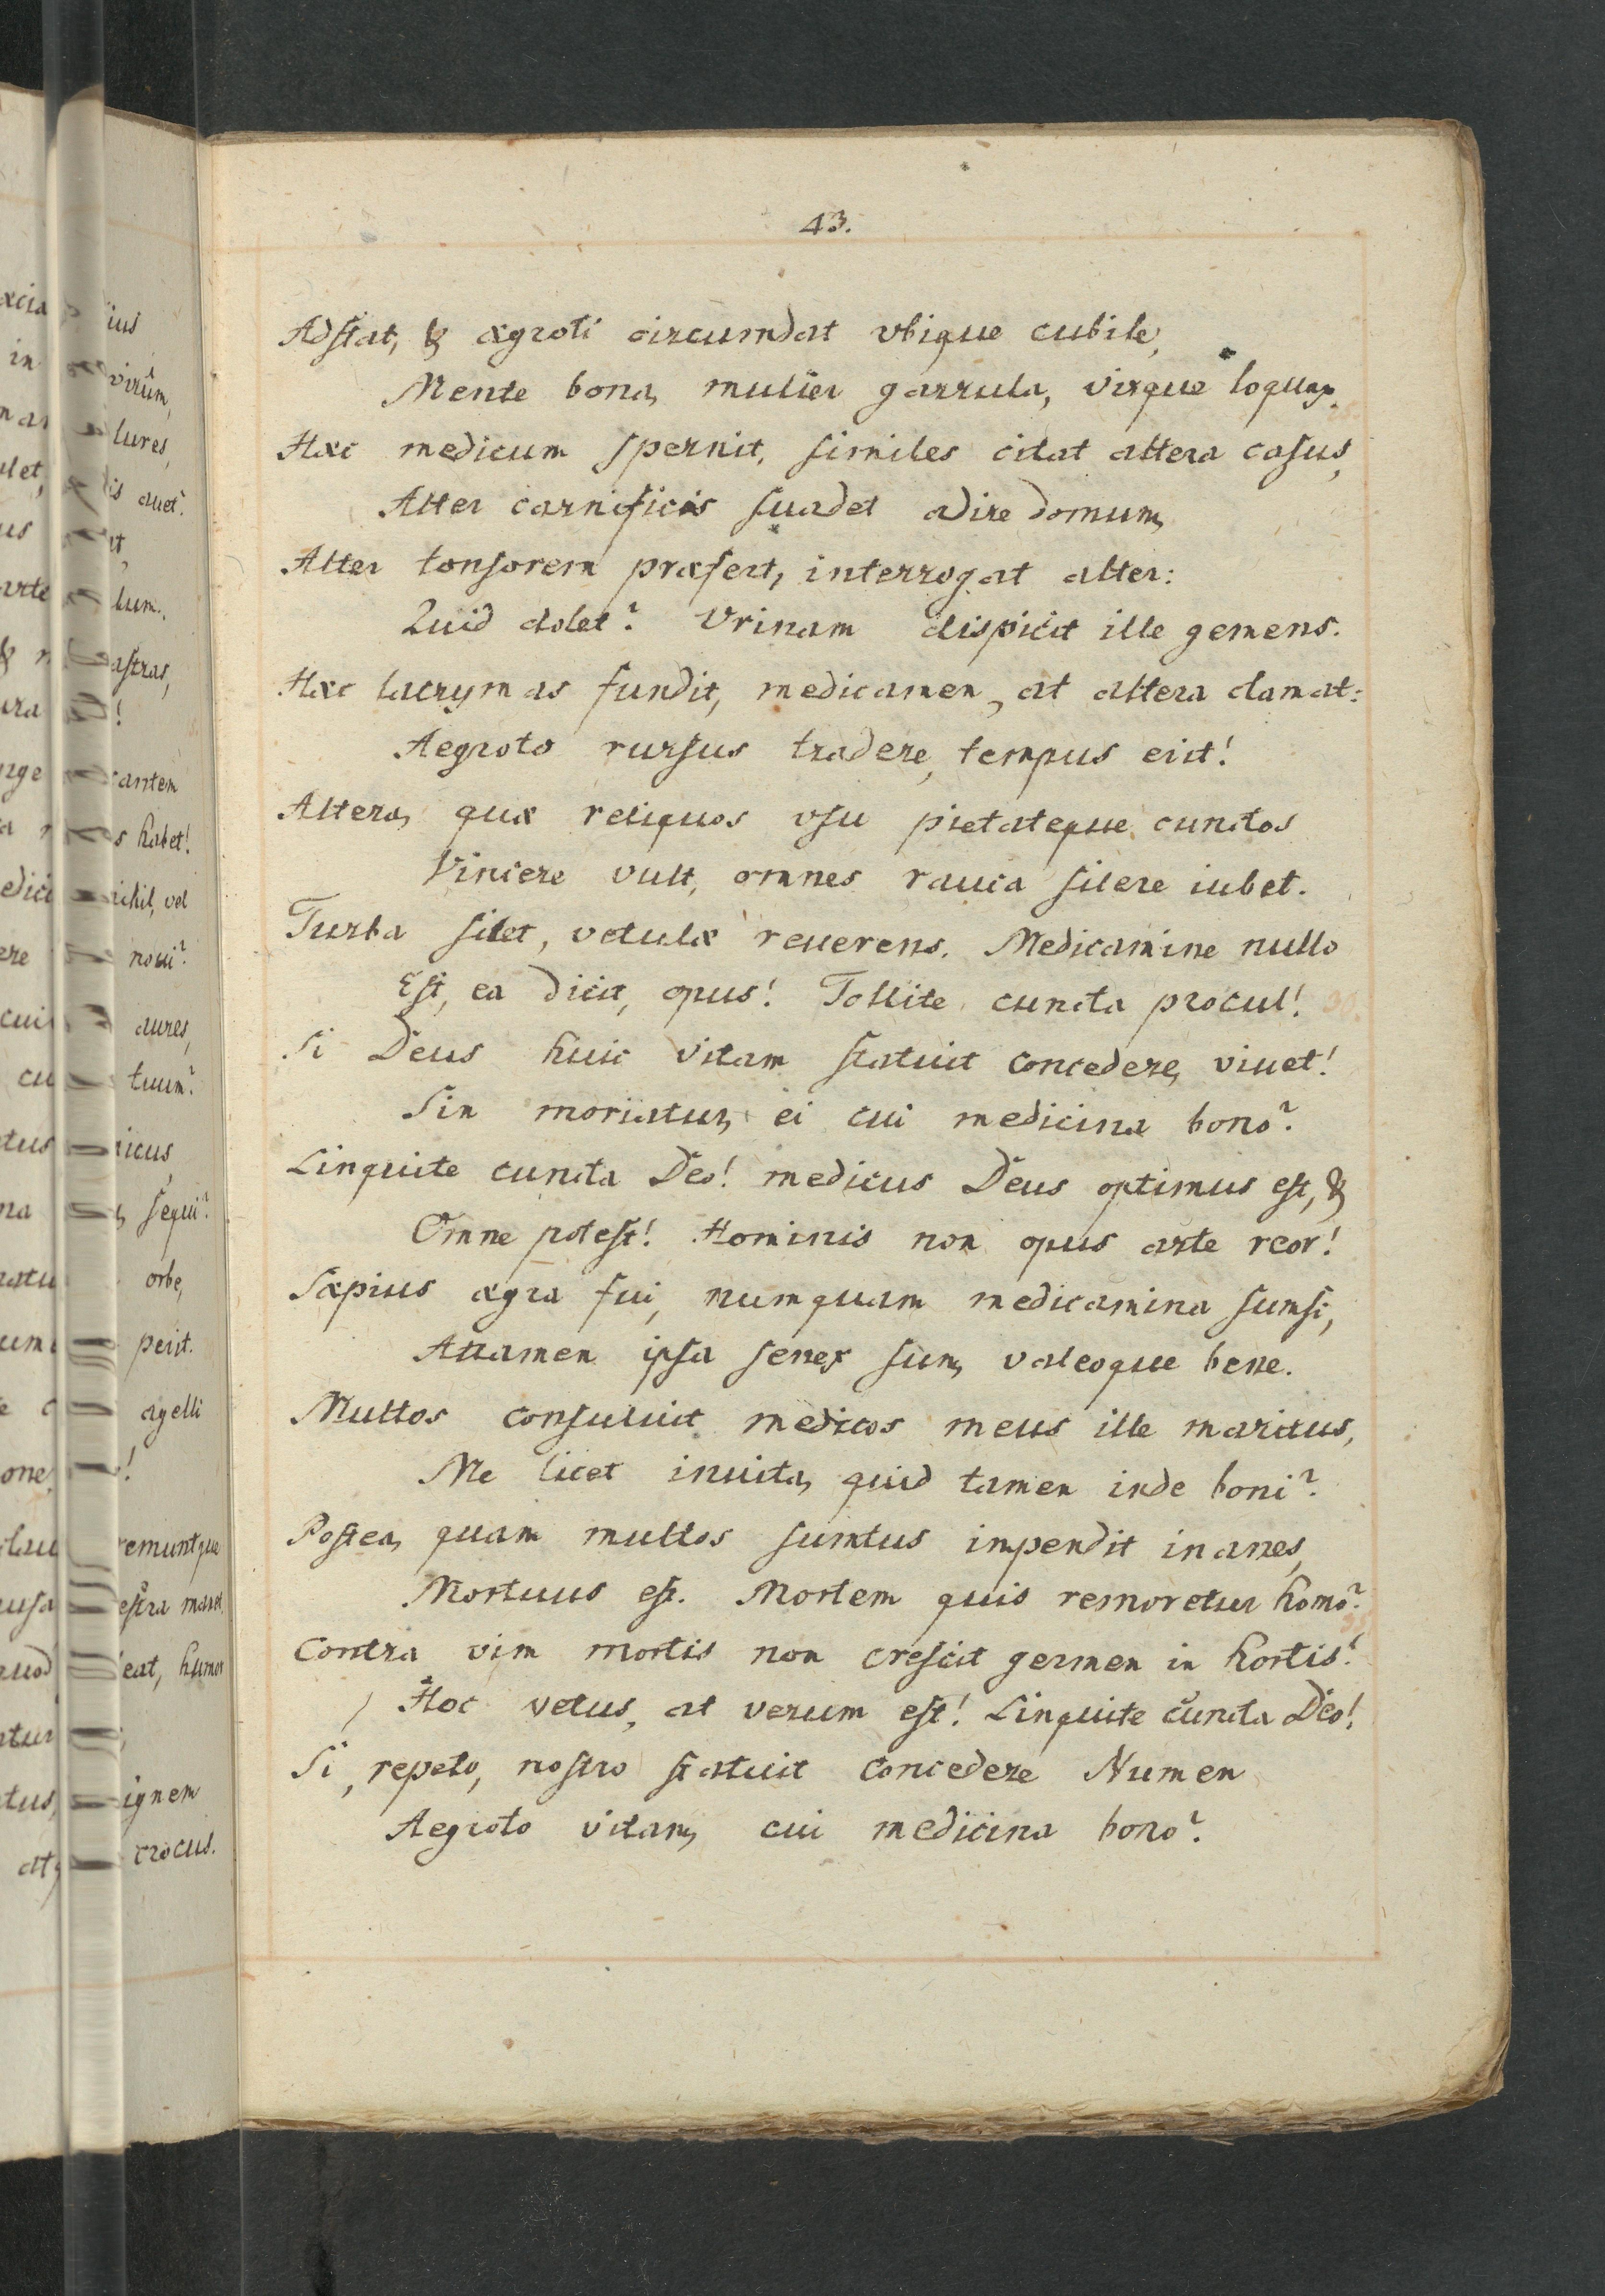 43.
Adstat, & ægroti circumdat vbique cubile,
Mente bona, mulier garrula, virque loquax.
Hæc medicum spernit, similes citat altera casus,
Alter carnificis suadet adire domum,
Alter tonsorem præfert, interrogat alter:
Quid dolet? Vrinam dispicit ille gemens.
Hæc lacrymas fundit, medicamen, at altera clamat:
Aegroto rursus tradere, tempus erit!
Altera, quæ reliquos vsu pietateque cunctos
Vincere vult, omnes rauca silere iubet.
Turba silet, vetulæ reuerens. Medicamine nullo
Est, ea dicit, opus! Tollite cuncta procul!
Si Deus huic vitam statuit concedere, viuet!
Sin moriatur, ei cui medicina bono?
Linquite cuncta Deo! medicus Deus optimus est, &
Omne potest! Hominis non opus arte reor!
Sæpius ægra fui, numquam medicamina sumsi,
Attamen ipsa senex sum, valeoque bene.
Multos consuluit medicos meus ille maritus,
Me licet inuita, quid tamen inde boni?
Postea, quam multos sumtus impendit inanes,
Mortuus est. Mortem quis remoretur homo?
Contra vim mortis non crescit germen in hortis!
Hoc vetus, at verum est! Linquite cuncta Deo!
Si, repeto, nostro statuit concedere Numen
Aegroto vitam, cui medicina bono?